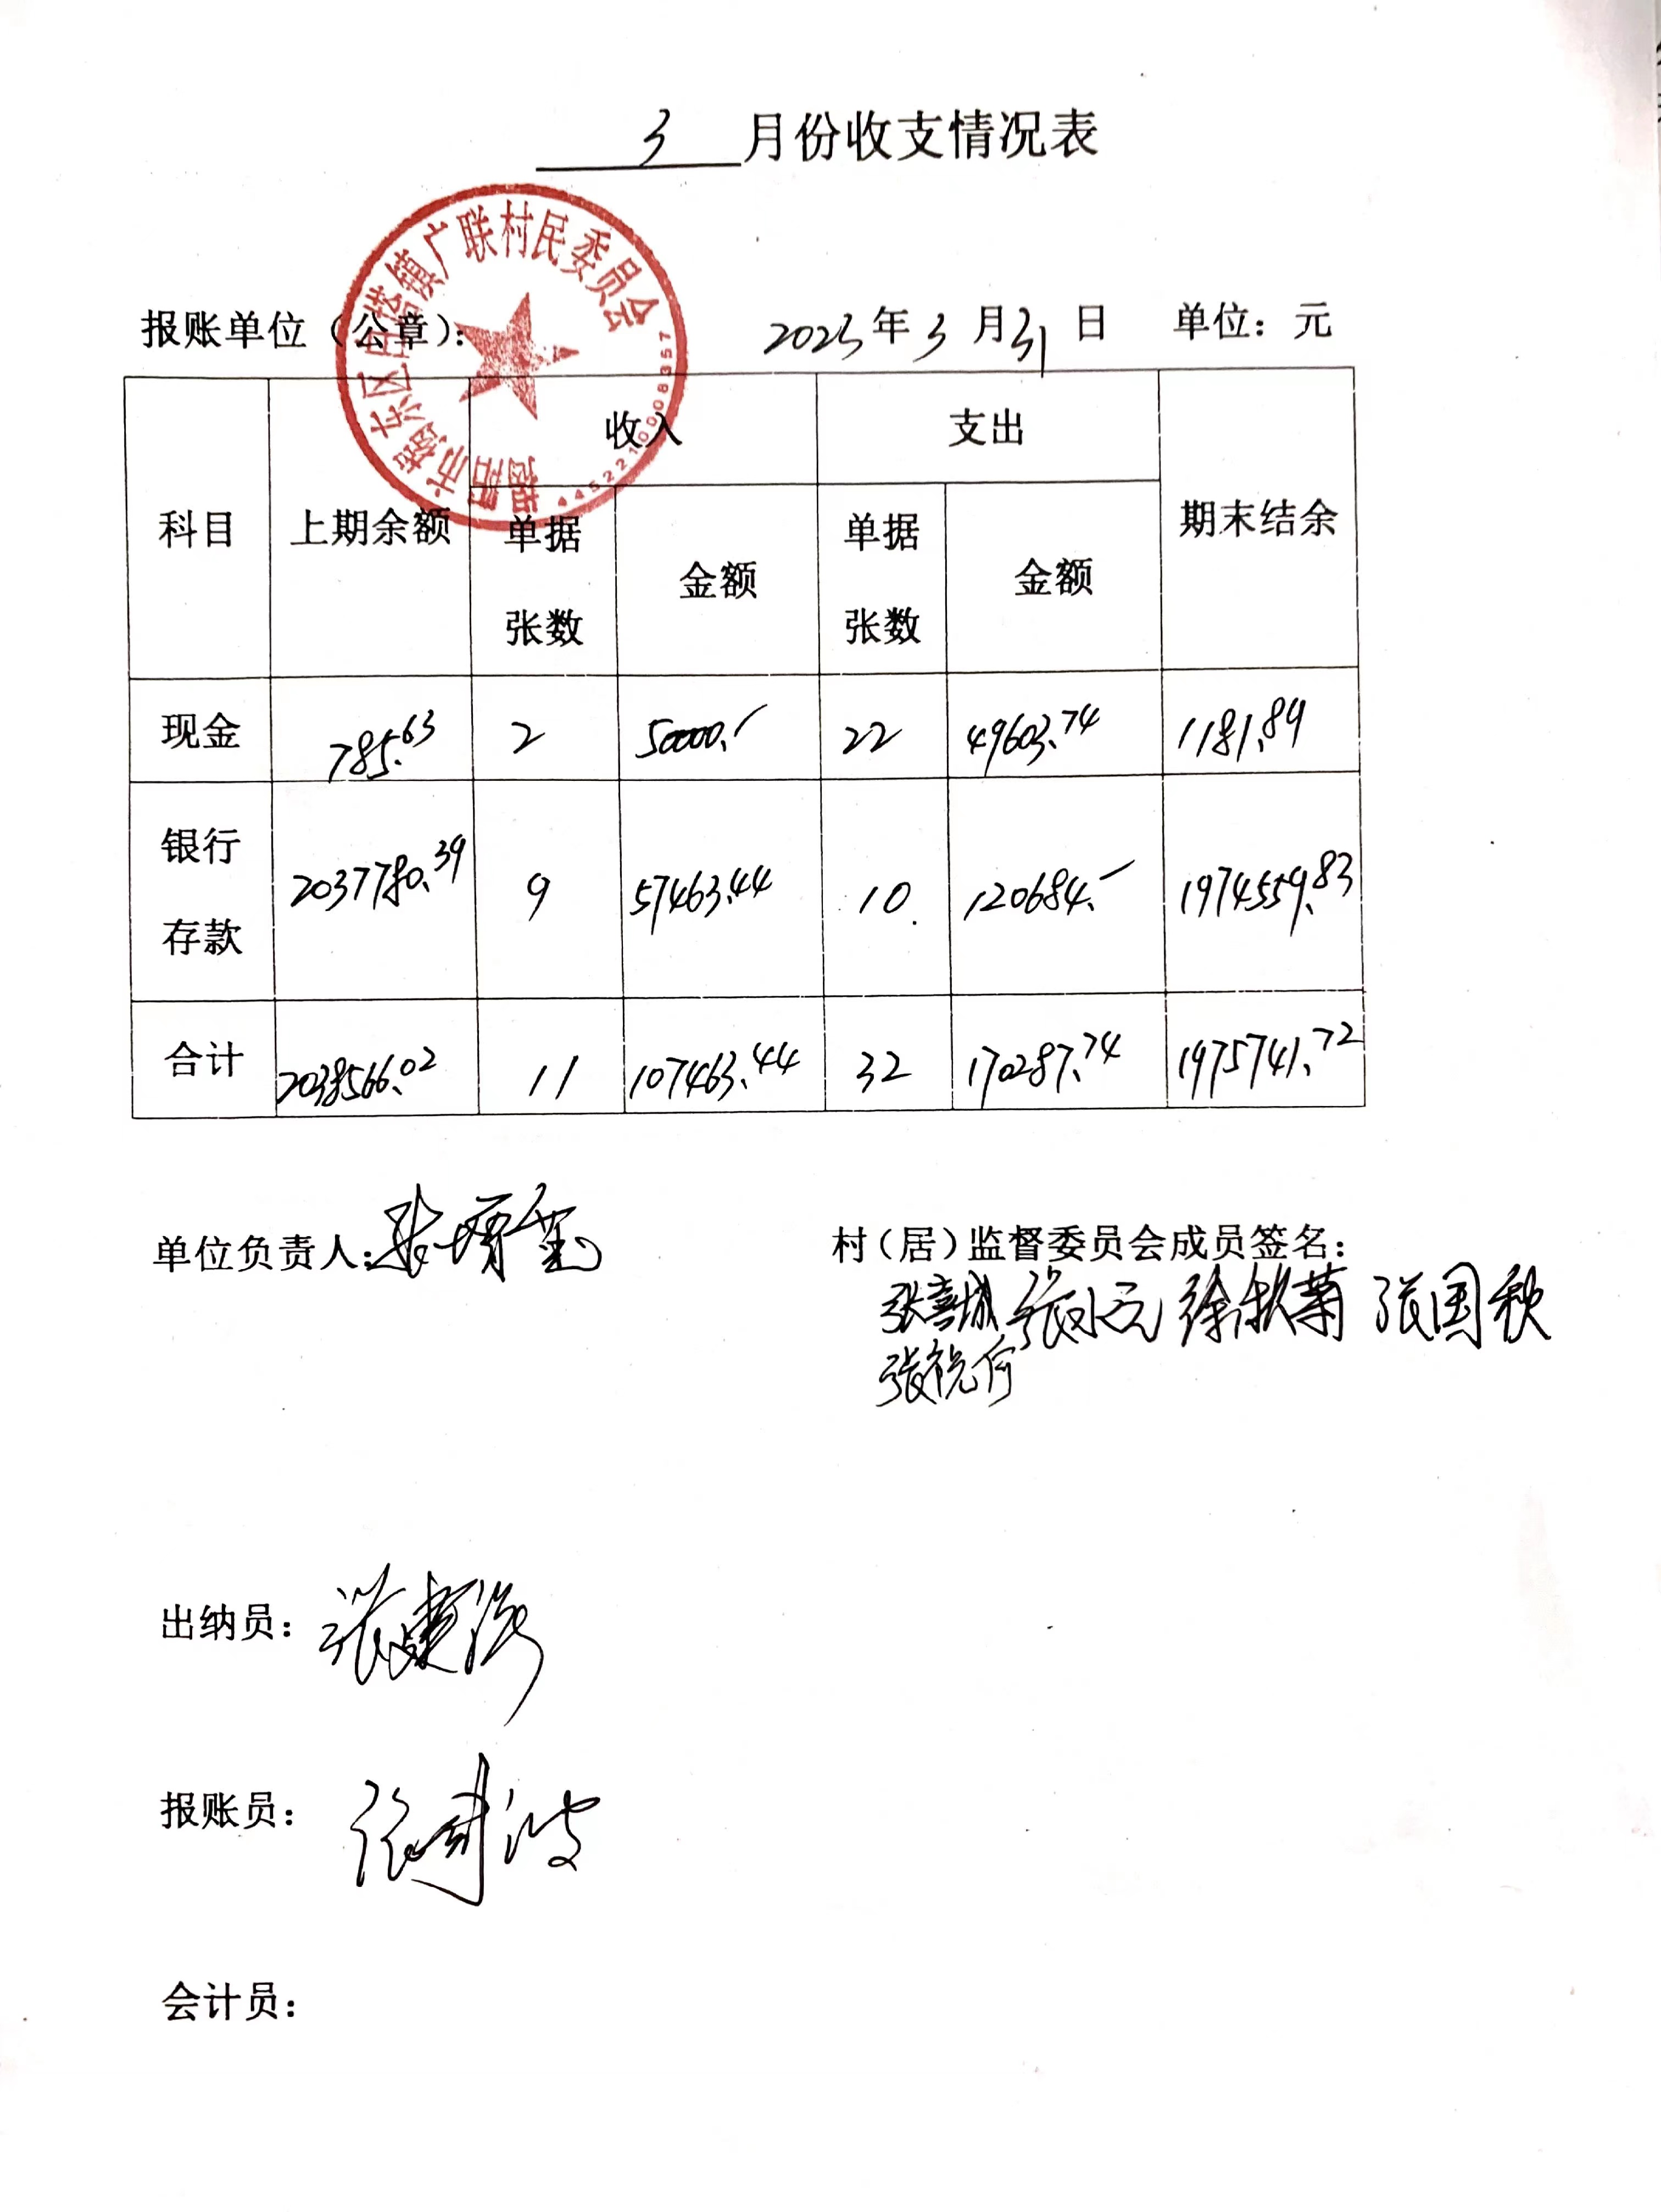 3月份收支情况表
揭阳市揭东区白塔镇广联村民委员会
4452210008357
报账单位（公章）： 2023年3月31日 单位：元
科目 上期余额 收入 支出 期末结余
单据张数 金额 单据张数 金额
现金 785.63 2 50000.- 22 49603.74 1181.89
银行存款 2037780.39 9 57463.44 10 120684.- 1974559.83
合计 2038566.02 11 107463.44 32 170287.74 1975741.72
单位负责人： 村（居）监督委员会成员签名：
张喜城 张水元 徐秋菊 张国秋
出纳员：
报账员：
会计员：